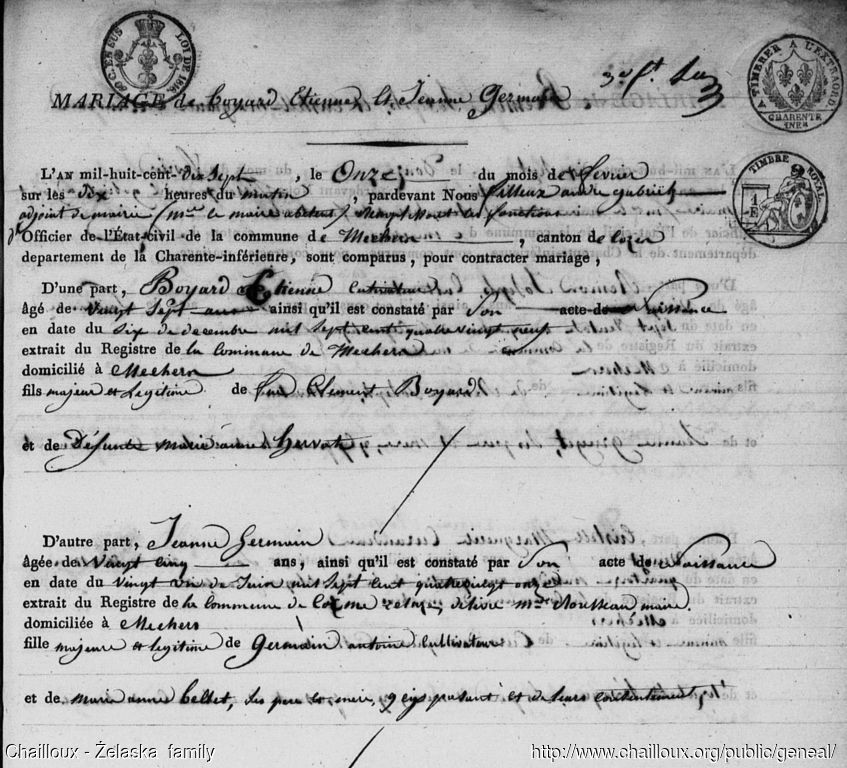 50 C. EN SUS LOI DE 1816
A TIMBRER A L'EXTRAORD
CHARENTE INFR
TIMBRE ROYAL
MARIAGE de Boyard Etienne Et Jeanne Germain
L'AN mil-huit-cent-dix Sept, le Onze du mois de fevrier
sur les dix heures du matin, pardevant Nous andre gabriel
adjoint de mairie (Mr le maire absent) les fonctions
d'Officier de l'État-civil de la commune de Mechers, canton de Cozes
departement de la Charente-inférieure, sont comparus, pour contracter mariage,
D'une part, Boyard Etienne Cultivateur
âgé de vingt Sept ans ainsi qu'il est constaté par Son acte de Naissance
en date du Six de decembre mil Sept Cent quatre vingt neuf
extrait du Registre de la Commune de Mechers
domicilié à Mechers
fils majeur et Legitime de feu Clement Boyard
et de Défunte marie anne Hervat
D'autre part, Jeanne Germain
âgée de Vingt Cinq ans, ainsi qu'il est constaté par Son acte de Naissance
en date du Vingt un de Juin mil Sept Cent quatre vingt onze
extrait du Registre de la Commune de délivré Mr Rousseau maire
domiciliée à Mechers
fille majeure et legitime de Germain antoine Cultivateur
et de marie anne Bellet, Ses pere et mere, presant et de leurs Consentement
Chailloux - Żelaska family
http://www.chailloux.org/public/geneal/